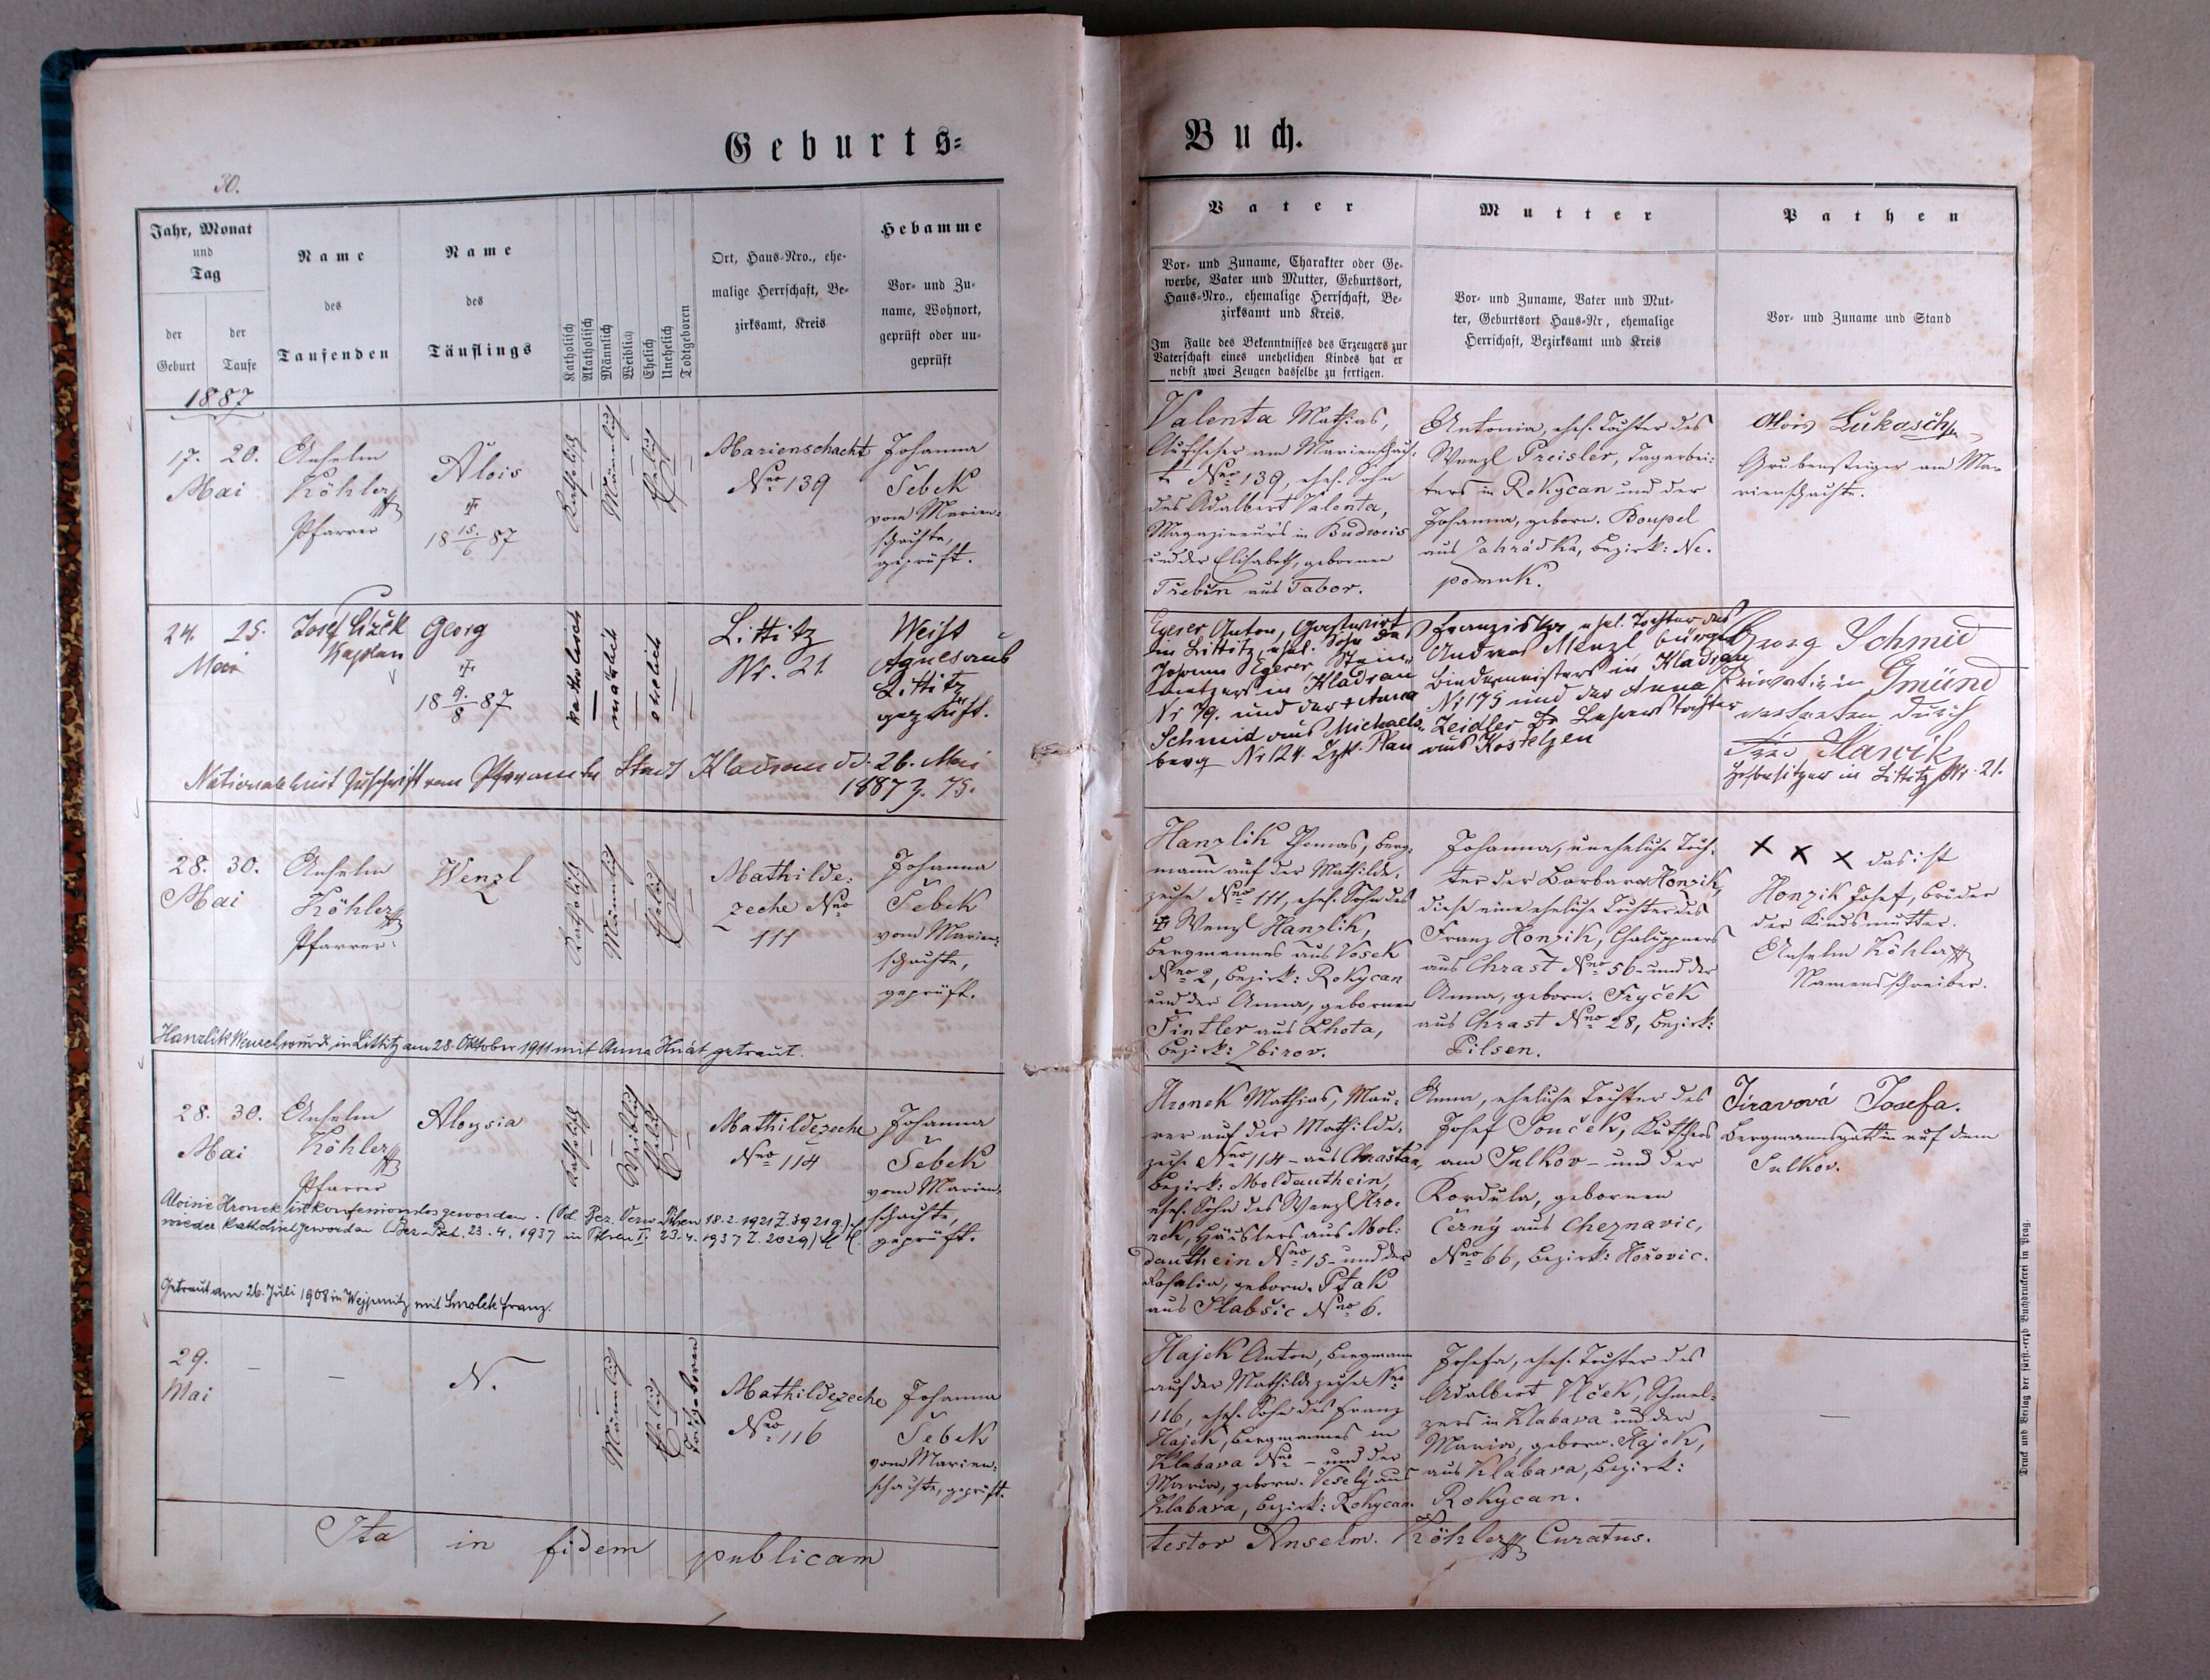 Geburts=
Buch.
30.
Jahr, Monat
und
Tag
der
Geburt
der
Taufe
Name
des
Taufenden
Name
des
Täuflings
Katholisch
Akatholisch
Männlich
Weiblich
Ehelich
Unehelich
Todtgeboren
Ort, Haus-Nro., ehe-
malige Herrschaft, Be-
zirksamt, Kreis
Hebamme
Vor- und Zu-
name, Wohnort,
geprüft oder un-
geprüft
Vater
Vor- und Zuname, Charakter oder Ge-
werbe, Vater und Mutter, Geburtsort,
Haus-Nro., ehemalige Herrschaft, Be-
zirksamt und Kreis.
Im Falle des Bekenntnisses des Erzeugers zur
Vaterschaft eines unehelichen Kindes hat er
nebst zwei Zeugen dasselbe zu fertigen.
Mutter
Vor- und Zuname, Vater und Mut-
ter, Geburtsort Haus-Nr, ehemalige
Herrschaft, Bezirksamt und Kreis
Pathen
Vor- und Zuname und Stand
1887
17. 20.
Mai
Anselm
Köhler
Pfarrer
Alois
†
18 15./6 87
Katholisch
Männlich
Ehelich
Marienschacht
Nro 139
Johanna
Šebek
vom Marien-
schachte,
geprüft.
Valenta Mathias,
Aufseher am Marienschach-
te Nro 139, ehel. Sohn
des Adalbert Valenta,
Magazineurs in Budweis
und der Elisabeth, gebornen
Třebin aus Tabor.
Antonia, ehel. Tochter des
Wenzl Preisler, Tagarbei-
ters in Rokycan und der
Johanna, geborn. Boupel
aus Zahrádka, Bezirk: Ne-
pomuk.
Alois Lukasch
Grubensteiger am Ma-
rienschachte.
24. 25.
Mai
Josef Cížek
Kaplan
Georg
†
18 9./8 87
katholisch
männlich
ehelich
Littitz
Nr. 21
Weiss
Agnes aus
Littitz
geprüft.
Nationale laut Zuschrift vom Pfarramte Stadt Kladrau dd. 26. Mai
1887 Z. 75.
Egerer Anton, Gastwirt
in Littitz, ehel. Sohn des
Johann Egerer Stein-
metzers in Kladrau
Nr 79. und der Anna
Schmid aus Michaels-
berg Nr 124. Bzk. Plan
Franziska, ehel. Tochter des
Andreas Menzl bürgl
Bindermeisters in Kladrau
Nr 175 und der Anna
Zeidler Lehrerstochter
aus Kostelzen
Georg Schmid
Privatier in Gmünd
vertreten durch
Slavik
Hofbesitzer in Littitz Nr. 21.
28. 30.
Mai
Anselm
Köhler
Pfarrer
Wenzl
Katholisch
Männlich
Ehelich
Mathilde-
zeche Nro
111
Johanna
Šebek
vom Marien-
schachte,
geprüft.
Hanzlik Wenzel wurde in Littitz am 28. Oktober 1911 mit Anna Hnát getraut.
Hanzlik Thomas, Berg-
mann auf der Mathilde-
zeche Nro 111, ehel. Sohn des
† Wenzl Hanzlik,
Bergmannes aus Vosek
Nro 2, Bezirk: Rokycan
und der Anna, gebornen
Šintler aus Lhota,
Bezirk: Zbirov.
Johanna, uneheliche Toch-
ter der Barbara Honzik,
diese eine eheliche Tochter des
Franz Honzik, Chaluppners
aus Chrast Nro 56 - und der
Anna, geborn. Fryček
aus Chrast Nro 28, Bezirk:
Pilsen.
X X X das ist
Honzik Josef, Bruder
der Kindsmutter.
Anselm Köhler
Namensschreiber.
28. 30.
Mai
Anselm
Köhler
Pfarrer
Aloysia
Katholisch
Weiblich
Ehelich
Mathildezeche
Nro 114
Johanna
Šebek
vom Marien-
schachte,
geprüft.
Aloisie Hronek ist konfessionslos geworden. (Od. Bez. Verw Pilsen 18.2.1921 Z. 39219.)
wieder katholisch geworden (Bez. Beh. 23.4.1937 in Pilsen I. 23.4.1937 Z. 2029)
Getraut am 26. Juli 1908 in Wejprnitz mit Smolek Franz.
Hronek Mathias, Mau-
rer auf der Mathilde-
zeche Nro 114 - aus Chrašťan,
Bezirk: Moldauthein,
ehel. Sohn des Wenzl Hro-
nek, Häuslers aus Mol-
dauthein Nro 15 - und der
Rosalia, geborn. Pták
aus Slabšic Nro 6.
Anna, eheliche Tochter des
Josef Souček, Kutschers
am Sulkov - und der
Kordula, gebornen
Černý aus Cheznavic,
Nro 66, Bezirk: Hořovic.
Jiravová Josefa.
Bergmannsgattin auf dem
Sulkov.
29.
Mai
—
—
N.
Männlich
Ehelich
Todtgeboren
Mathildezeche
Nro 116
Johanna
Šebek
vom Marien-
schachte, geprüft.
Hajek Anton, Bergmann
auf der Mathildezeche Nro
116, ehel. Sohn des Franz
Hajek, Bergmannes in
Klabava Nro - und der
Maria, geborn. Veselý aus
Klabava, Bezirk: Rokycan.
Josefa, ehel. Tochter des
Adalbert Vlček, Schmel-
zers in Klabava und der
Maria, geborn. Hajek,
aus Klabava, Bezirk:
Rokycan.
—
Ita in fidem publicam
testor Anselm. Köhler Curatus.
Druck und Verlag der fürst.-erzb Buchdruckerei in Prag.